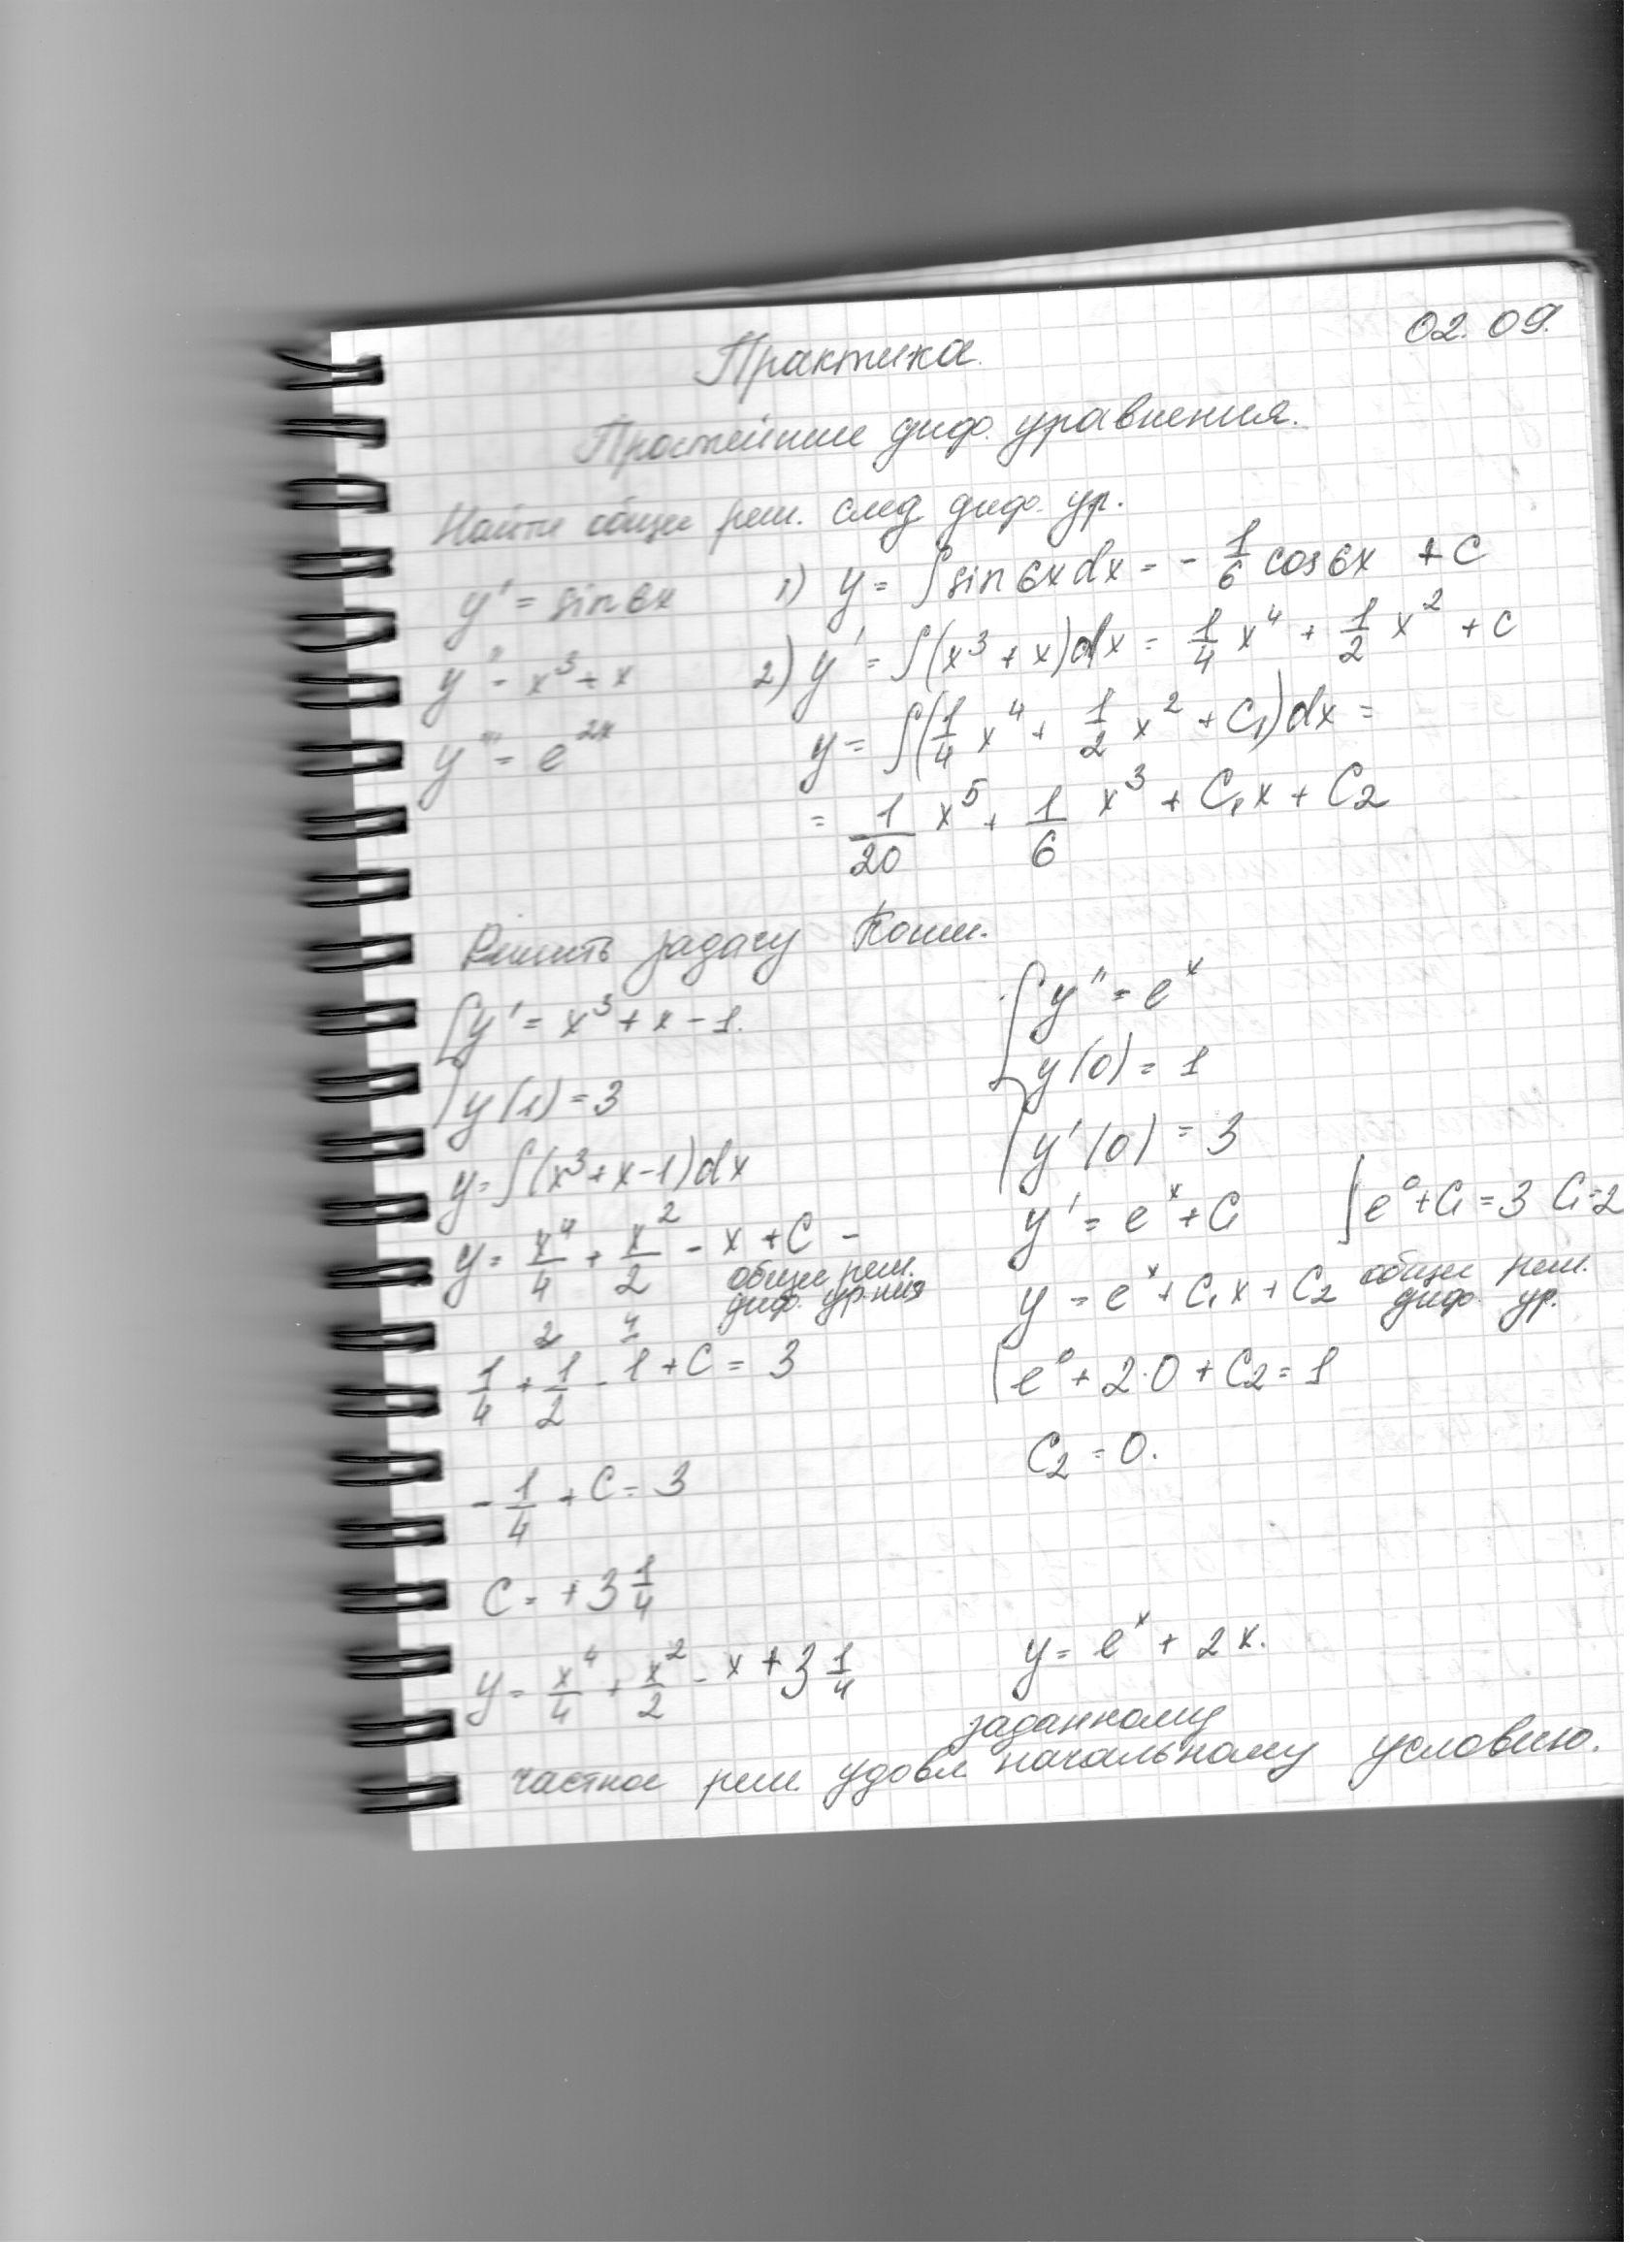 Практика. 02.09.
Простейшие диф. уравнения.
Найти общее реш. след диф. ур.
y' = sin6x 1) y = ∫sin6xdx = - 1/6 cos6x + C
y'' = x³ + x 2) y' = ∫(x³ + x)dx = 1/4 x⁴ + 1/2 x² + C
y''' = e²ˣ y = ∫(1/4 x⁴ + 1/2 x² + C₁)dx =
= 1/20 x⁵ + 1/6 x³ + C₁x + C₂
Решить задачу Коши.
{ y' = x³ + x - 1.
y(1) = 3
y = ∫(x³ + x - 1)dx
y = x⁴/4 + x²/2 - x + C -
общее реш.
диф. ур-ния
1/4 + 1/2 - 1 + C = 3
- 1/4 + C = 3
C = + 3 1/4
y = x⁴/4 + x²/2 - x + 3 1/4
{ y'' = eˣ
y(0) = 1
y'(0) = 3
y' = eˣ + C₁ | e⁰ + C₁ = 3 C₁ = 2
y = eˣ + C₁x + C₂ общее реш.
диф. ур.
| e⁰ + 2·0 + C₂ = 1
C₂ = 0.
y = eˣ + 2x.
заданному
частное реш. удовл начальному условию.